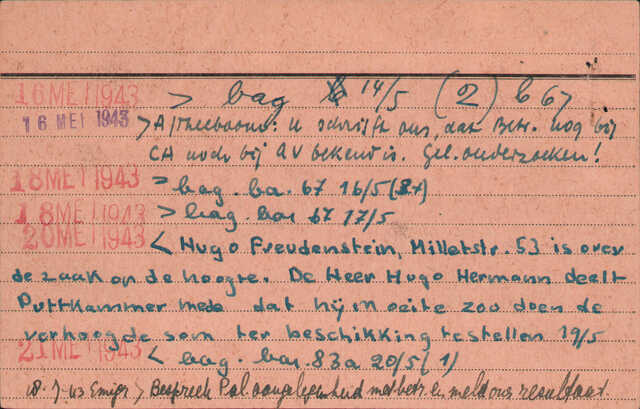 16 MEI 1943 > bag 14/5 (2) b 67
16 MEI 1943 > A/Theeboom: U schrijft ons, dat Betr. nog bij
CA noch bij AV bekend is. Gel. onderzoeken!
18 MEI 1943 > bag. ba. 67 16/5 (8+)
18 MEI 1943 > bag. bar 67 17/5
20 MEI 1943 < Hugo Freudenstein, Milletstr. 53 is over
de zaak op de hoogte. De Heer Hugo Hermann deelt
Puttkammer mede dat hij moeite zou doen de
verhoogde som ter beschikking te stellen 19/5
21 MEI 1943 < bag. bar. 83a 20/5 (1)
Bespreek Pal. aangelegenheid met betr. en meld ons resultaat.